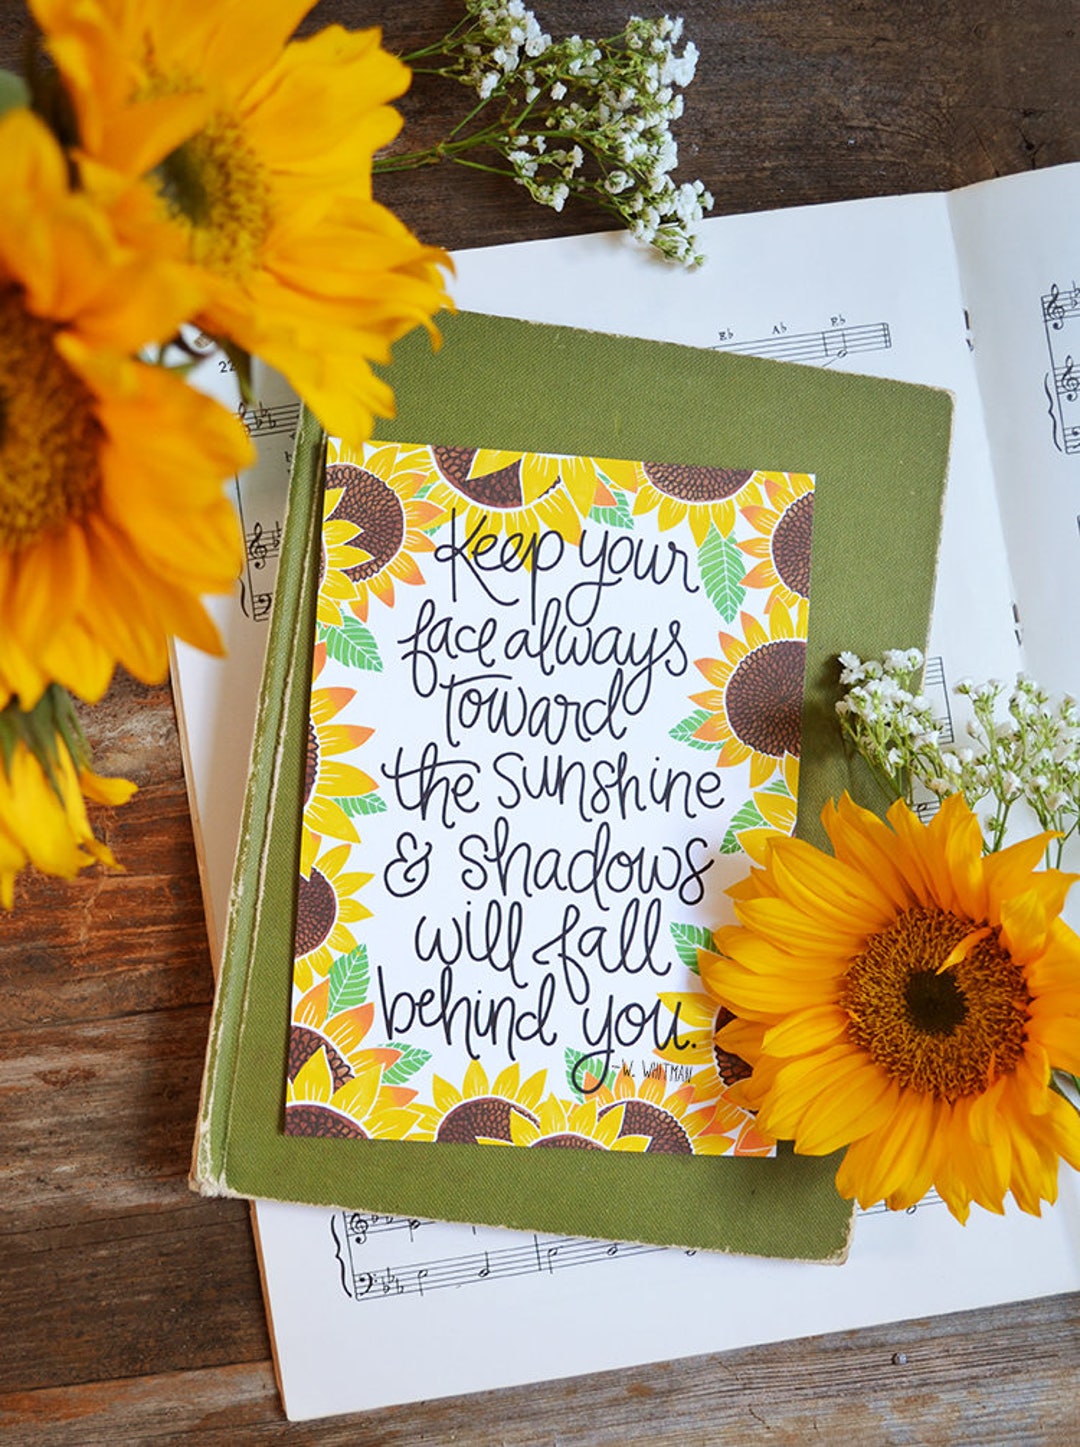 Eb Ab Eb
22
Keep your
face always
toward
the sunshine
& shadows
will fall
behind you.
-W. WHITMAN